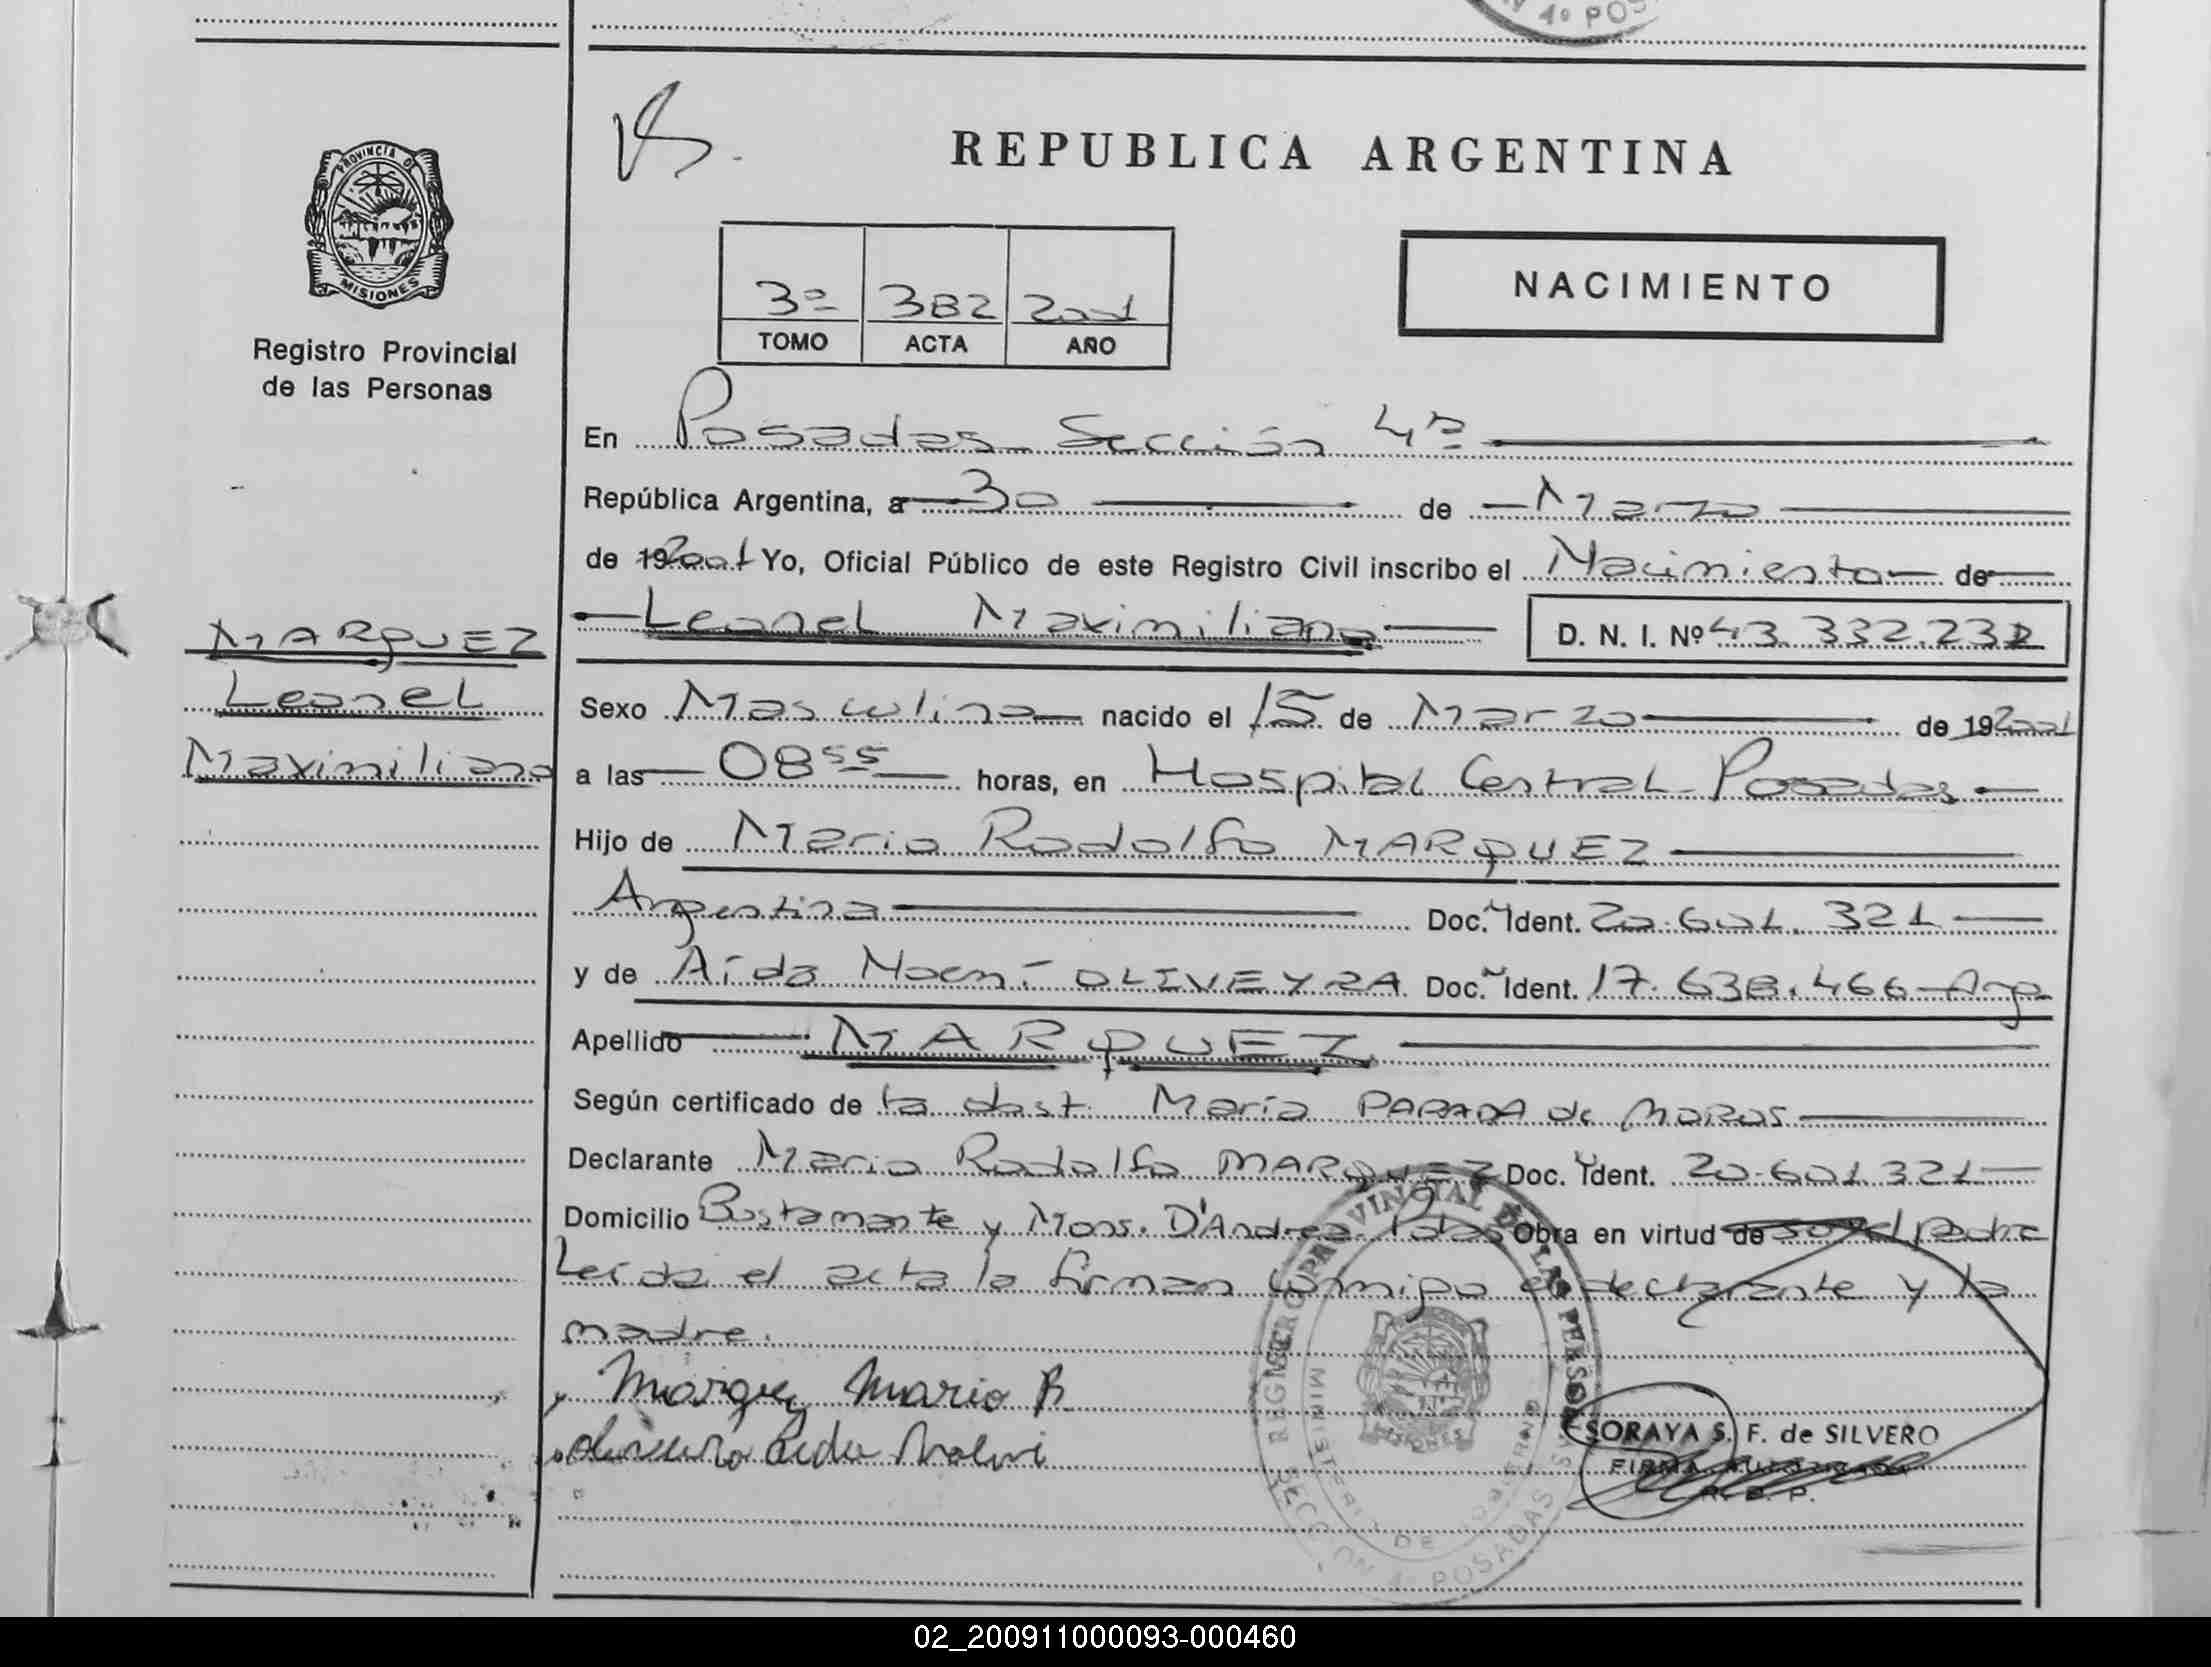 N 4º POS
REPUBLICA ARGENTINA
PROVINCIA DE
MISIONES
Registro Provincial
de las Personas
3º 382 2001
TOMO ACTA AÑO
NACIMIENTO
En Posadas Sección 4ª
República Argentina, a 30 de Marzo
de 19 2001 Yo, Oficial Público de este Registro Civil inscribo el Nacimiento de
Leonel Maximiliano D. N. I. Nº 43.332.232
MARQUEZ
Leonel
Maximiliano
Sexo Masculino nacido el 15 de Marzo de 19 2001
a las 08 55 horas, en Hospital Central Posadas
Hijo de Mario Rodolfo MARQUEZ
Argentina Doc. Ident. 20.601.321
y de Aída Noemí OLIVEYRA Doc. Ident. 17.638.466 Arg.
Apellido MARQUEZ
Según certificado de la obst. María PARADA de MOROS
Declarante Mario Rodolfo MARQUEZ Doc. Ident. 20.601.321
Domicilio Bustamante y Mons. D'Andrea Pdas Obra en virtud de ser el padre
Leída el acta la firman conmigo el declarante y la
madre.
Marquez Mario R.
REGISTRO PROVINCIAL DE LAS PERSONAS
MINISTERIO DE GOBIERNO
MISIONES
SECCION 4º POSADAS
SORAYA S. F. de SILVERO
FIRMA AUTORIZADA
R. P. P.
02_200911000093-000460